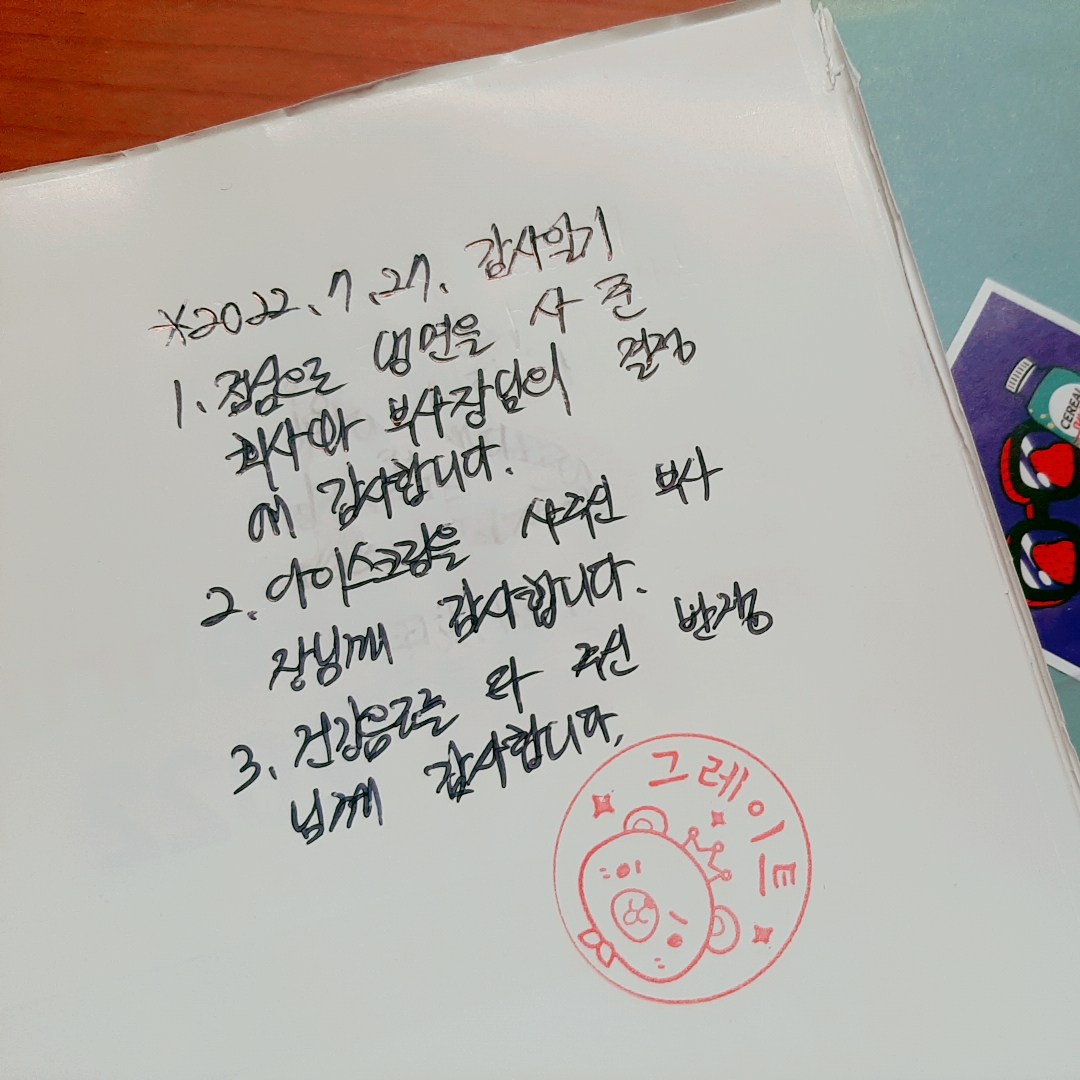 ※2022.7.27. 감사일기
1. 점심으로 냉면을 사 준
회사와 부사장님의 결정
에 감사합니다.
2. 아이스크림을 사주신 부사
장님께 감사합니다.
3. 건강음료를 타 주신 반장
님께 감사합니다.
그레이트
CEREAL